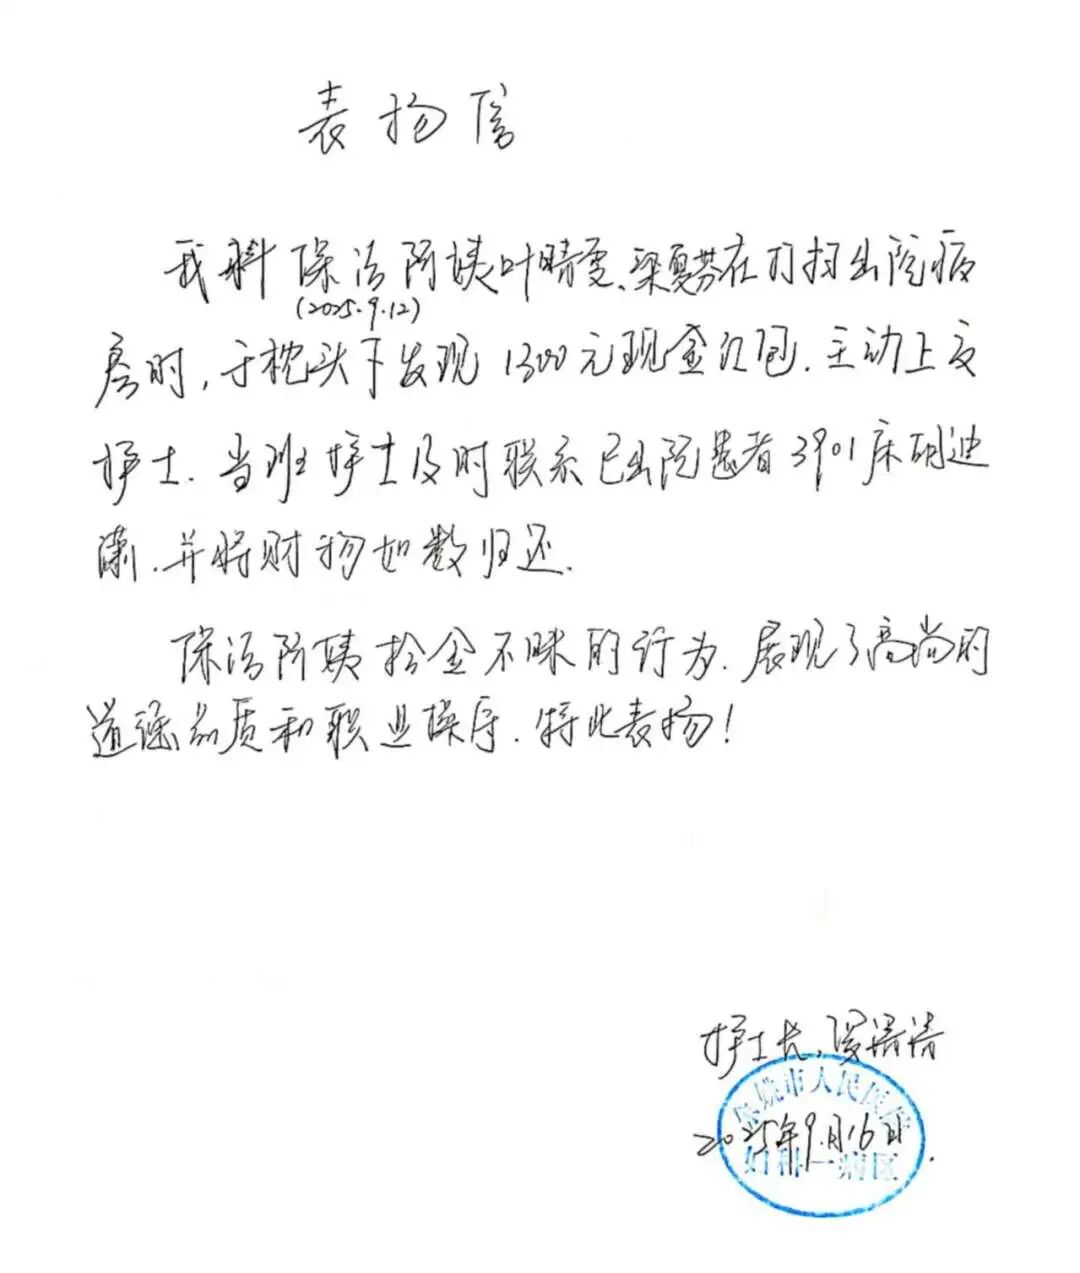 表扬信
我科保洁阿姨叶晴雯、梁夏芬在打扫出院病
(2025.9.12)
房时，于枕头下发现1300元现金红包.主动上交
护士.当班护士及时联系已出院患者3901床胡迪
潇.并将财物如数归还.
保洁阿姨拾金不昧的行为.展现了高尚的
道德品质和职业操守.特此表扬！
护士长，
余姚市人民医院
2025年9月16日.
妇科一病区